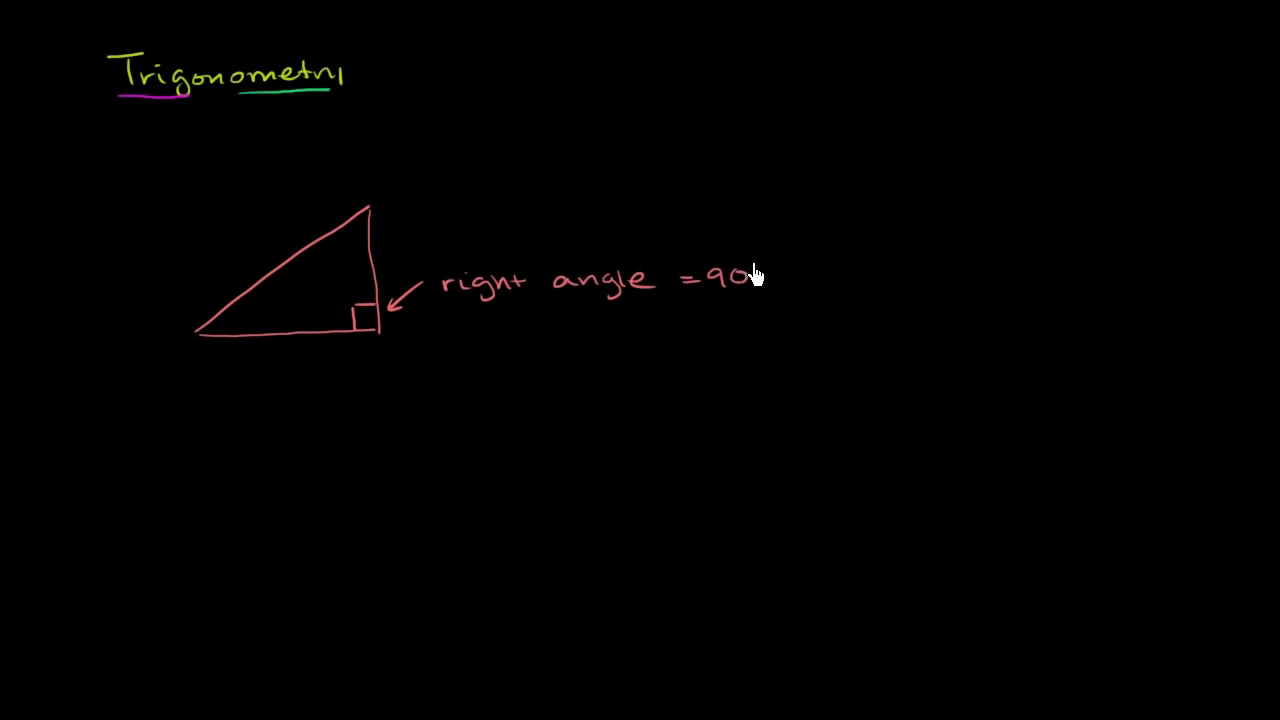 Trigonometry
right angle = 90